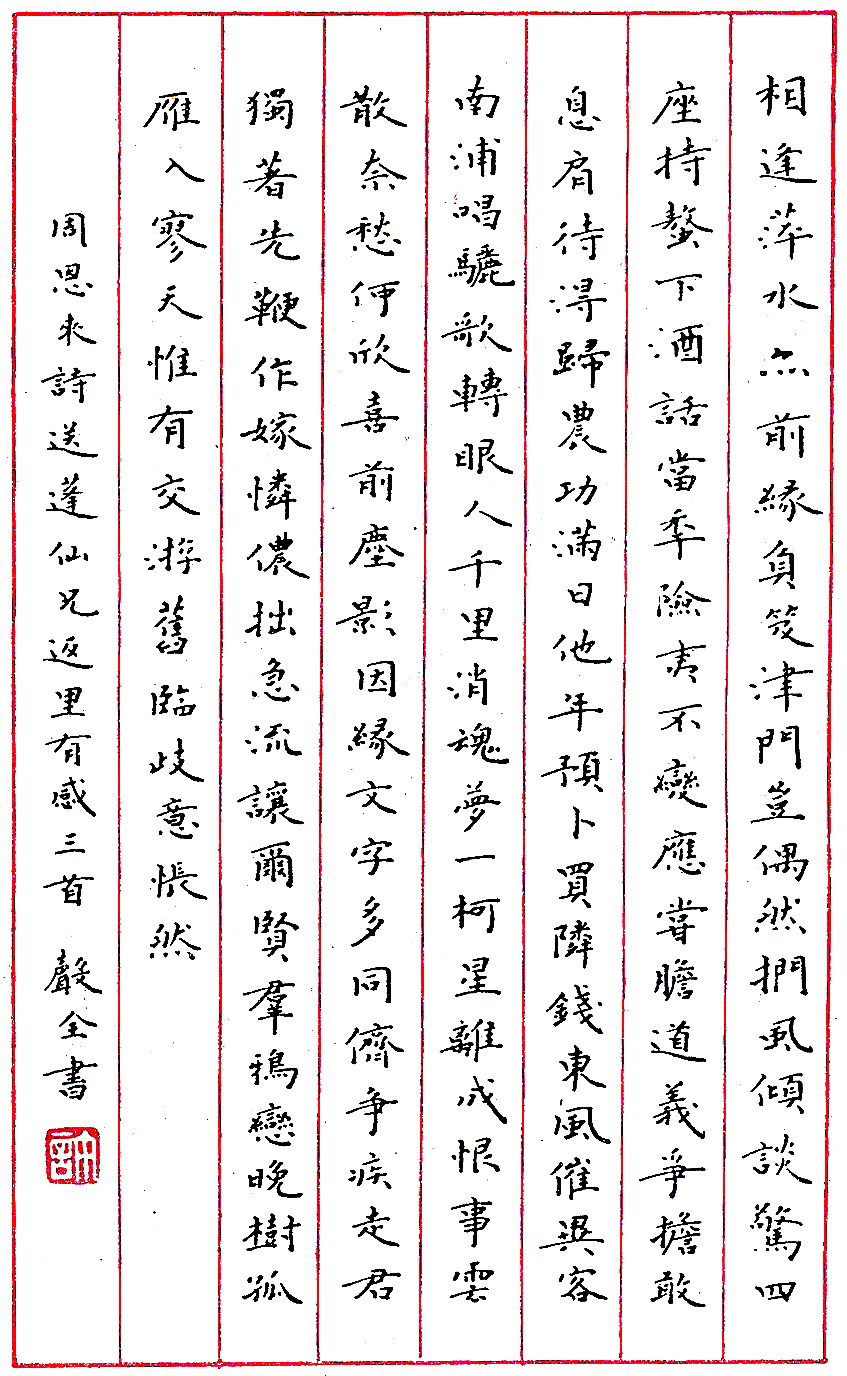 相逢萍水亦前緣負笈津門豈偶然捫虱傾談驚四
座持螯下酒話當秊險夷不變應嘗膽道義爭擔敢
息肩待得歸農功滿日他年預卜買隣錢東風催異客
南浦唱驪歌轉眼人千里消魂夢一柯星離成恨事雲
散奈愁何欣喜前塵影因緣文字多同儕爭疾走君
獨著先鞭作嫁憐儂拙急流讓爾賢羣鴉戀晚樹孤
雁入寥天惟有交游舊臨歧意悵然
周恩來詩送蓬仙兄返里有感三首 全書